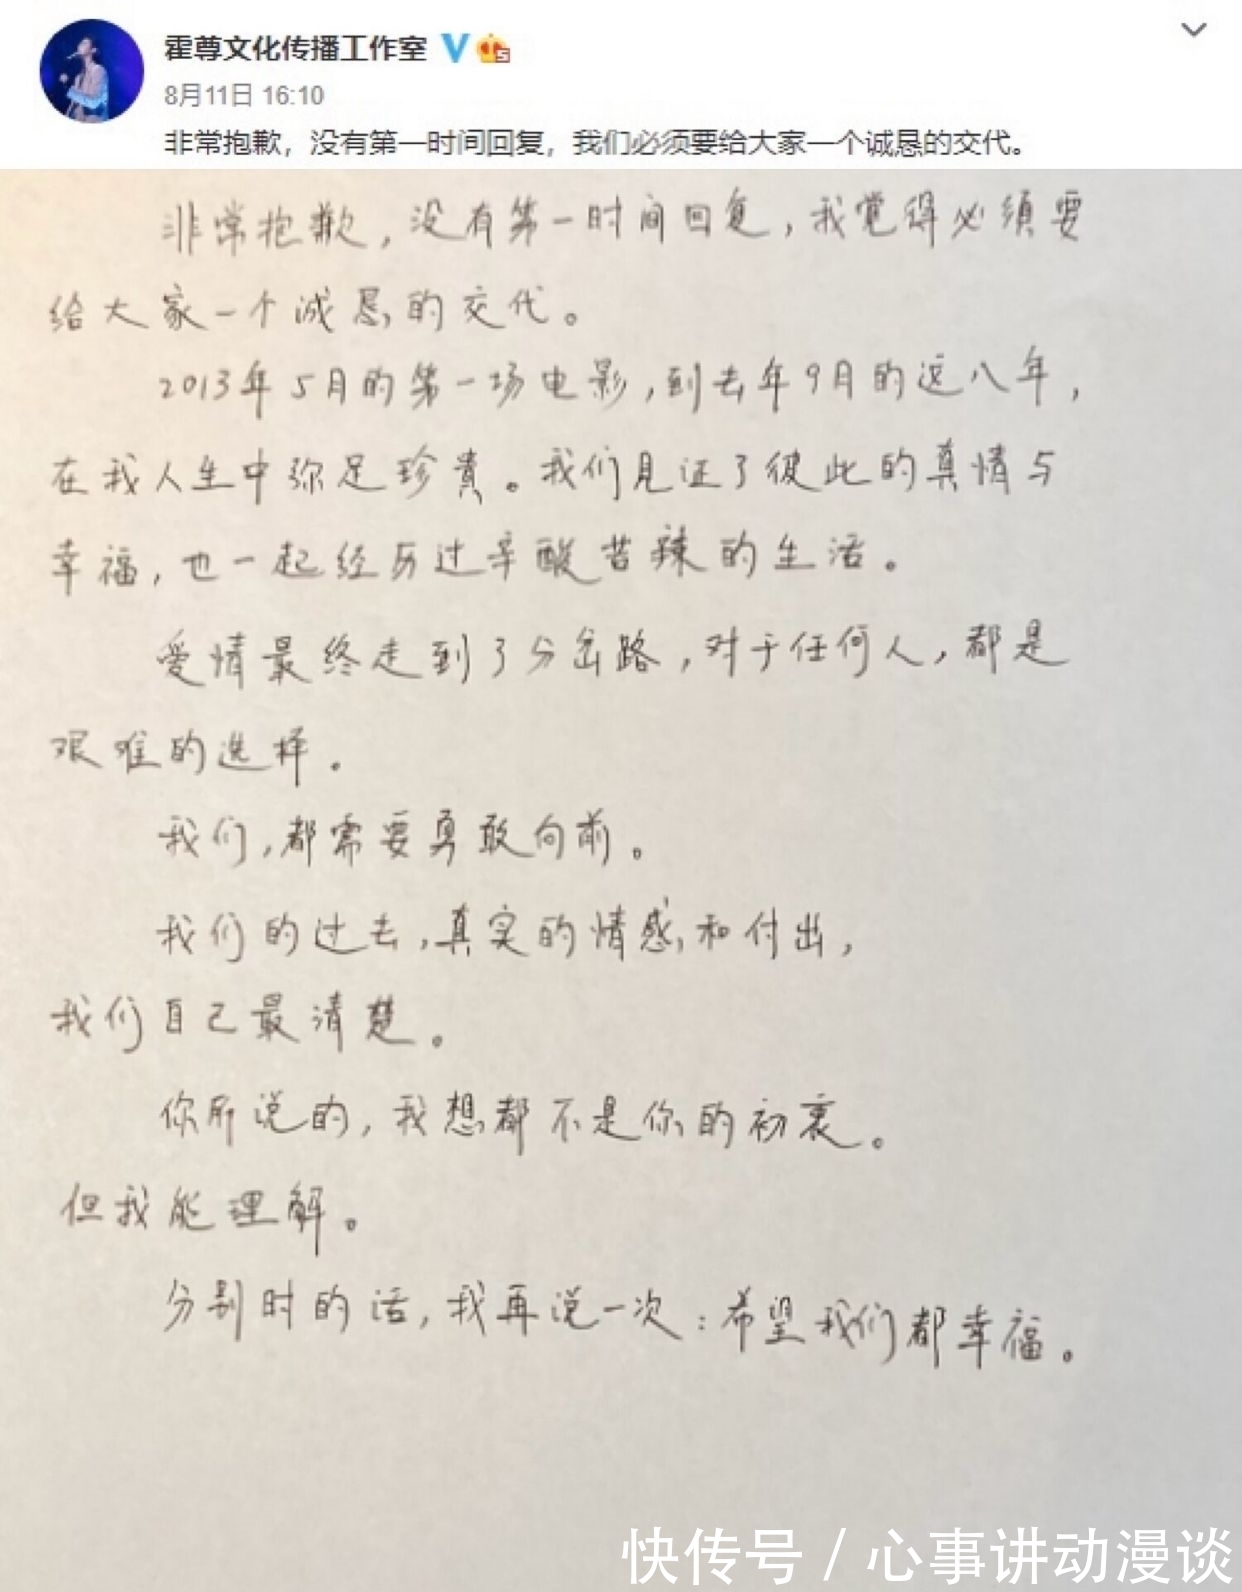 霍尊文化传播工作室
8月11日 16:10
非常抱歉，没有第一时间回复，我们必须要给大家一个诚恳的交代。
非常抱歉，没有第一时间回复，我觉得必须要
给大家一个诚恳的交代。
2013年5月的第一场电影，到去年9月的这八年，
在我人生中弥足珍贵。我们见证了彼此的真情与
幸福，也一起经历过辛酸苦辣的生活。
爱情最终走到了分岔路，对于任何人，都是
艰难的选择。
我们，都需要勇敢向前。
我们的过去，真实的情感和付出，
我们自己最清楚。
你所说的，我想都不是你的初衷。
但我能理解。
分别时的话，我再说一次：希望我们都幸福。
快传号 / 心事讲动漫谈